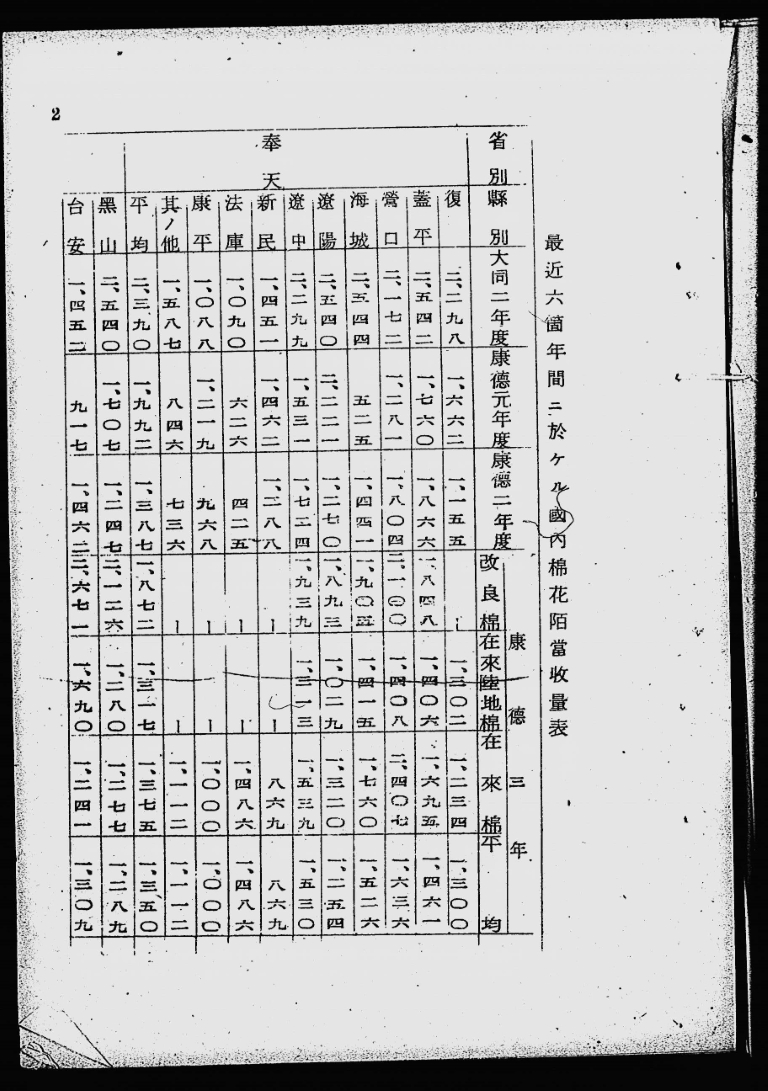 2
最近六箇年間ニ於ケル國內棉花陌當收量表
省別 縣別 大同二年度 康德元年度 康德二年度 康德三年 改良棉 在來陸地棉 在來棉 平均
奉天
復 二、二九八 一、六六二 一、一五五 ー 一、三〇二 一、二三四 一、三〇〇
蓋平 二、五四二 一、七六〇 一、八六六 一、八四八 一、四〇六 一、六九五 一、四六一
營口 二、一七二 一、二八一 一、八〇四 二、一〇〇 一、四〇八 二、四〇七 一、六三六
海城 二、五四四 五二五 一、四四一 一、九〇三 一、四一五 一、七六〇 一、五二六
遼陽 二、五四〇 二、二二一 一、二七〇 一、八九三 一、〇二九 一、三二〇 一、二五四
遼中 二、二九九 一、五三一 一、七二四 一、九三九 一、三一三 一、五三九 一、五三〇
新民 一、四五一 一、四六二 一、二八八 ー ー 八六九 八六九
法庫 一、〇九〇 六二六 四二五 ー ー 一、四八六 一、四八六
康平 一、〇八八 一、二一九 九六八 ー ー 一、〇〇〇 一、〇〇〇
其ノ他 一、五八七 八四六 七三六 ー ー 一、一一二 一、一一二
平均 二、三九〇 一、九九二 一、三八七 一、八七二 一、三一七 一、三七五 一、三五〇
黑山 二、五四〇 一、七〇七 一、二四七 二、一二六 一、二八〇 一、二七七 一、二八九
台安 一、四五二 九一七 一、四六二 二、六七一 一、六九〇 一、二四一 一、三〇九